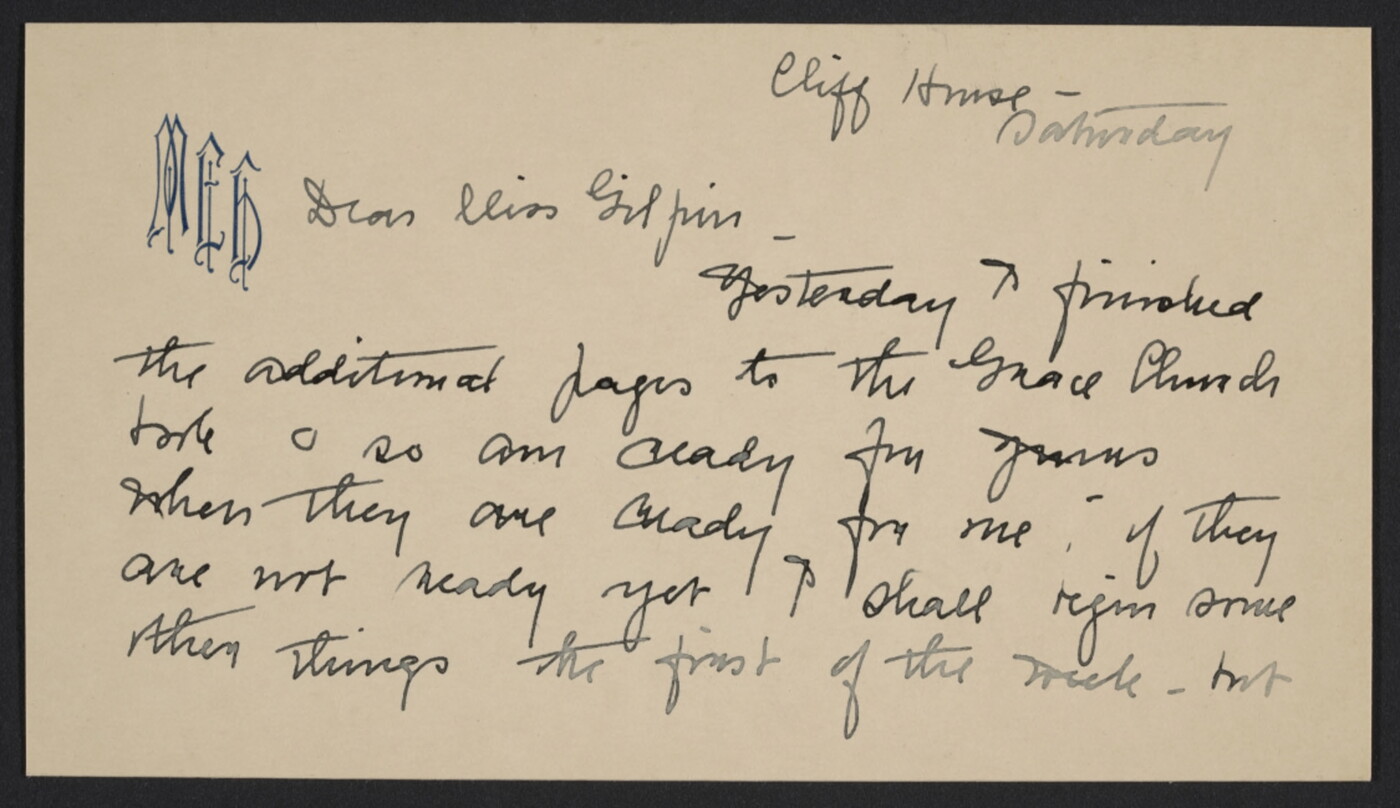 Cliff House -
Saturday
MEH
Dear Miss Gilpin -
Yesterday I finished
the additional pages to the Grace Church
book & so am ready for yours
when they are ready for me; if they
are not ready yet I shall begin some
other things the first of the week - but